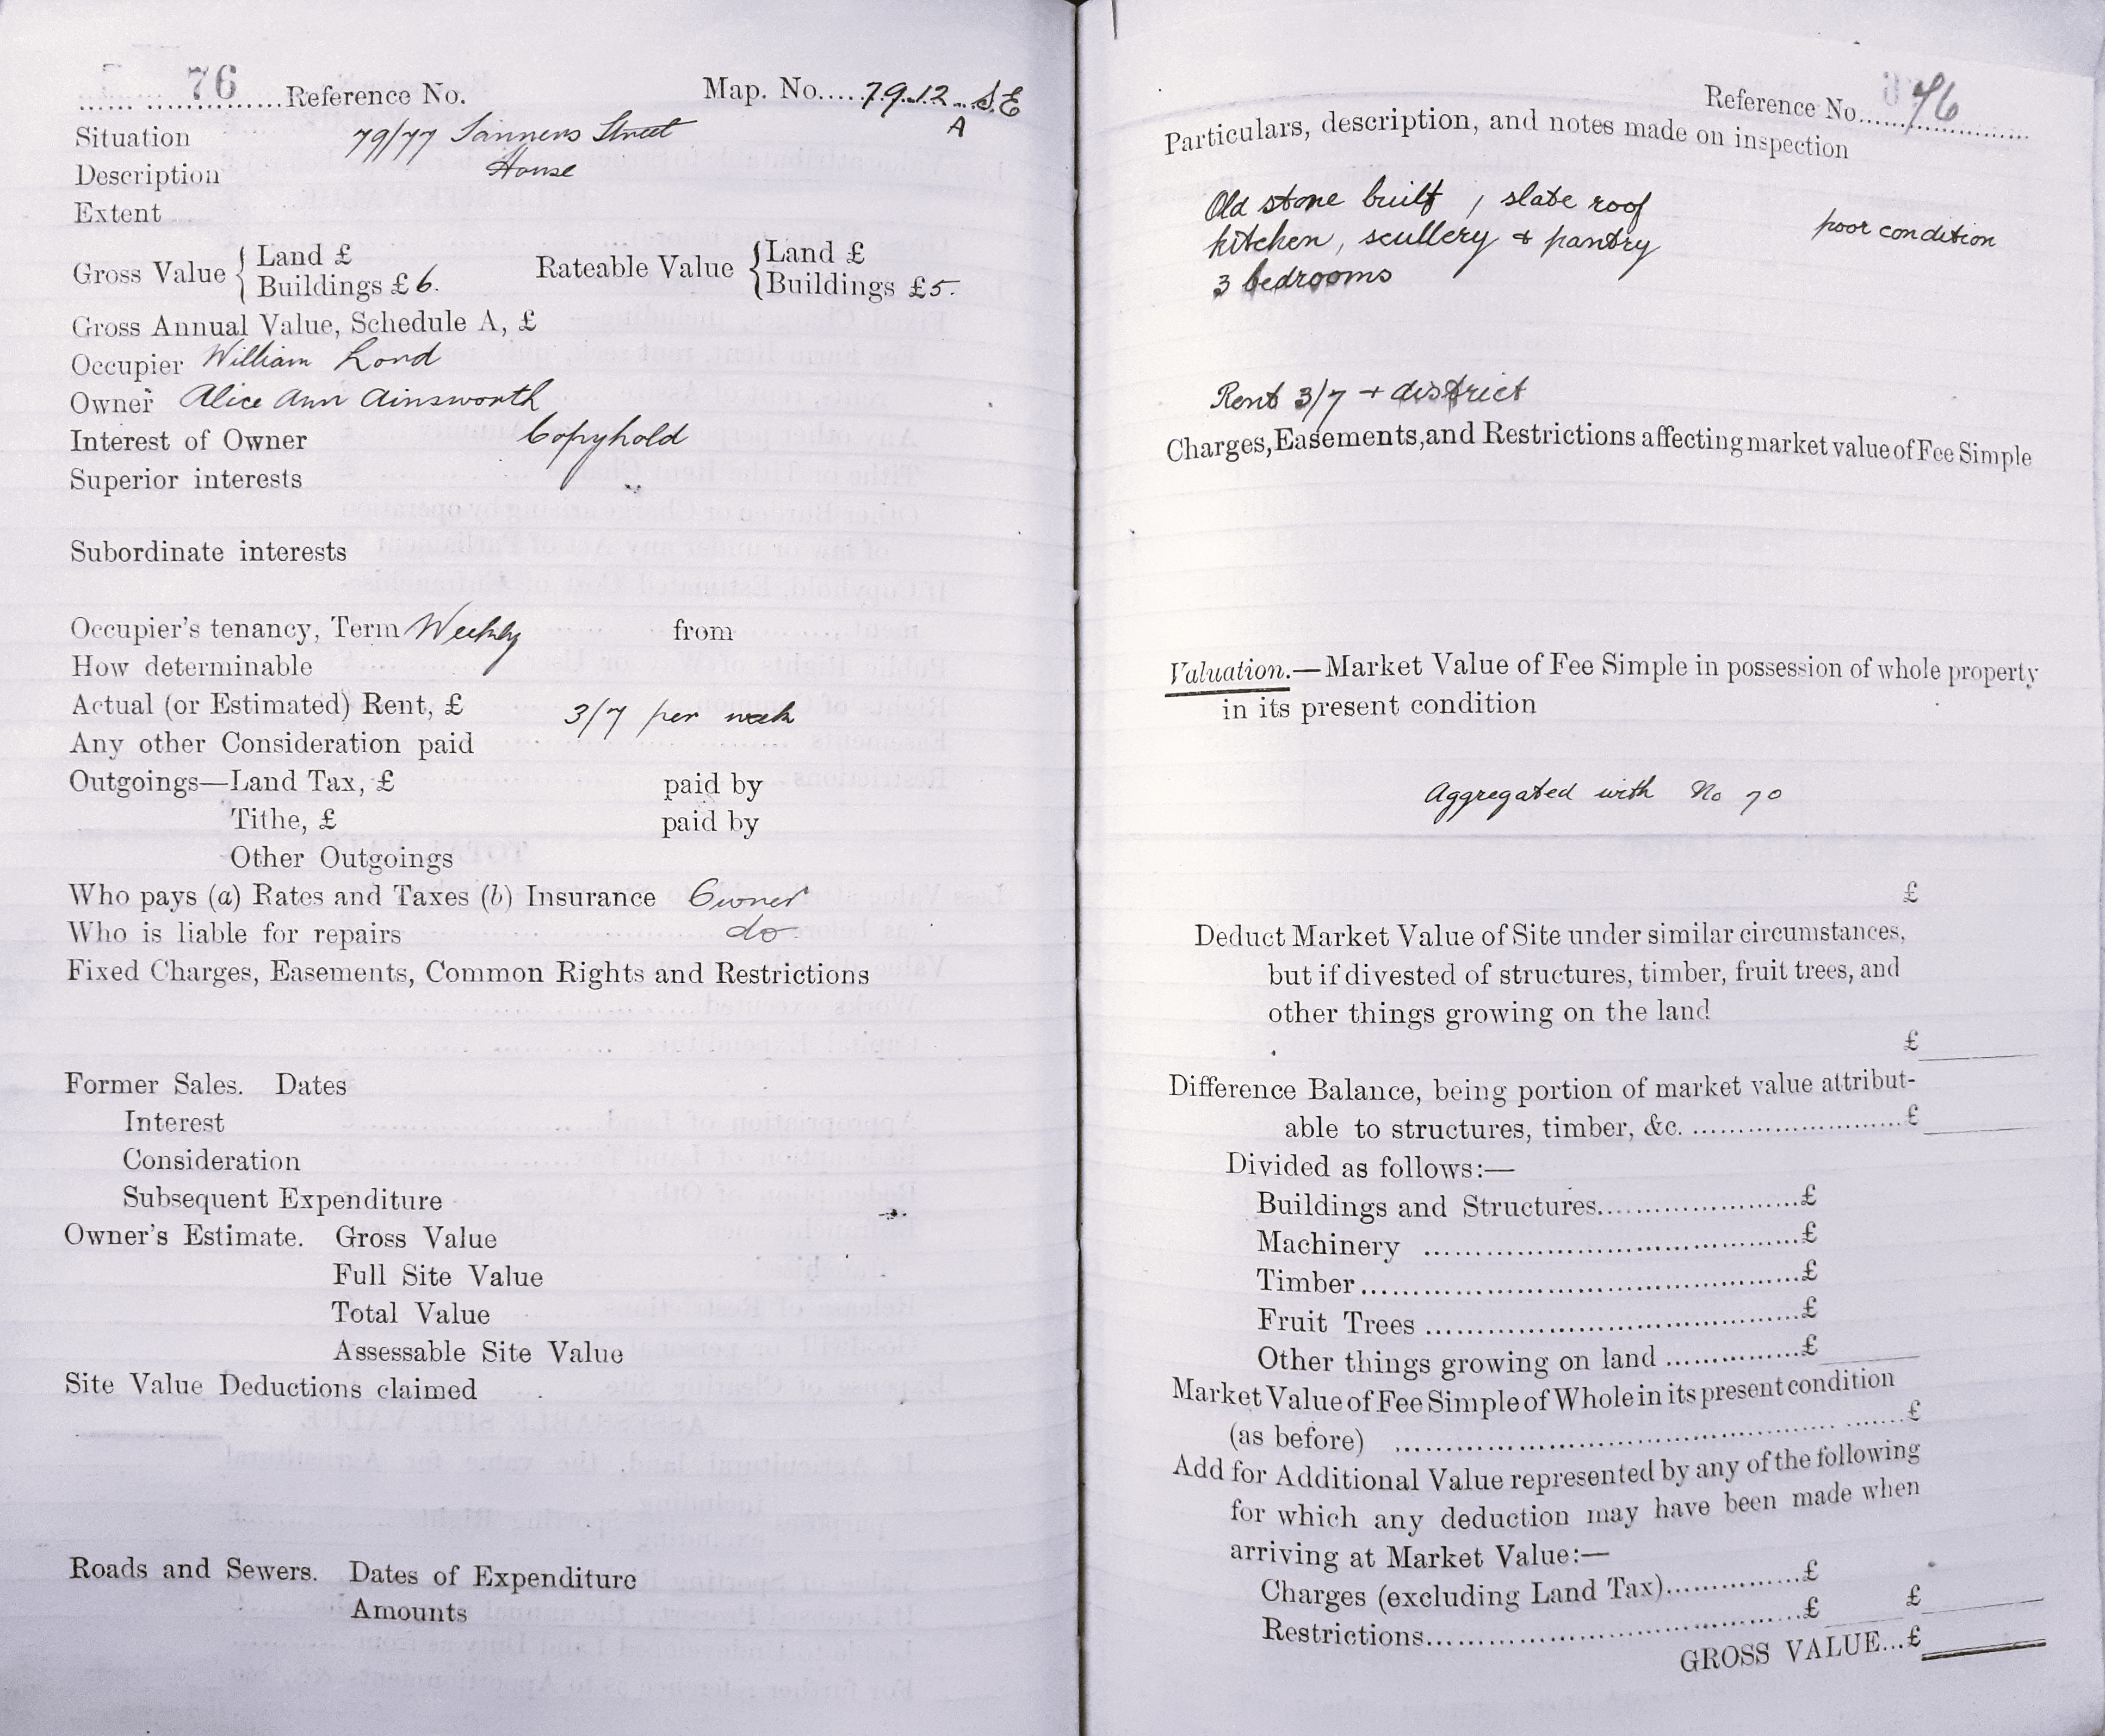 76 Reference No. Map. No. 79.12 S.E
A
Situation 79/77 Tanners Street
Description House
Extent
Gross Value { Land £ Rateable Value { Land £
Buildings £ 6. Buildings £ 5.
Gross Annual Value, Schedule A, £
Occupier William Lord
Owner Alice Ann Ainsworth
Interest of Owner Copyhold
Superior interests
Subordinate interests
Occupier's tenancy, Term Weekly from
How determinable
Actual (or Estimated) Rent, £ 3/7 per week
Any other Consideration paid
Outgoings—Land Tax, £ paid by
Tithe, £ paid by
Other Outgoings
Who pays (a) Rates and Taxes (b) Insurance Owner
Who is liable for repairs do
Fixed Charges, Easements, Common Rights and Restrictions
Former Sales. Dates
Interest
Consideration
Subsequent Expenditure
Owner's Estimate. Gross Value
Full Site Value
Total Value
Assessable Site Value
Site Value Deductions claimed
Roads and Sewers. Dates of Expenditure
Amounts
Reference No. 76
Particulars, description, and notes made on inspection
Old stone built, slate roof
kitchen, scullery + pantry poor condition
3 bedrooms
Rent 3/7 + district
Charges, Easements, and Restrictions affecting market value of Fee Simple
Valuation.—Market Value of Fee Simple in possession of whole property
in its present condition
Aggregated with No 70
£
Deduct Market Value of Site under similar circumstances,
but if divested of structures, timber, fruit trees, and
other things growing on the land
£
Difference Balance, being portion of market value attribut-
able to structures, timber, &c. £
Divided as follows:—
Buildings and Structures £
Machinery £
Timber £
Fruit Trees £
Other things growing on land £
Market Value of Fee Simple of Whole in its present condition
(as before) £
Add for Additional Value represented by any of the following
for which any deduction may have been made when
arriving at Market Value:—
Charges (excluding Land Tax) £
Restrictions £ £
GROSS VALUE... £